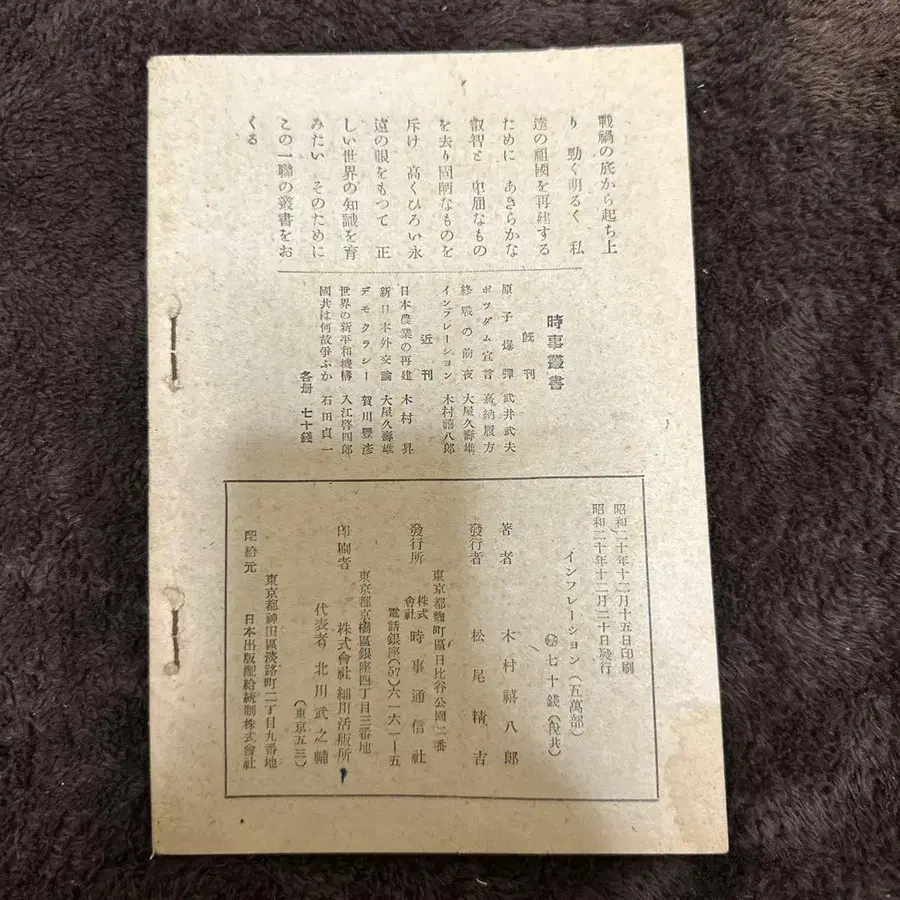 戰禍の底から起ち上
り　勁く明るく　私
達の祖國を再建する
ために　あきらかな
叡智と　卑屈なもの
を去り固陋なものを
斥け　高くひろい永
遠の眼をもつて　正
しい世界の知識を育
みたい　そのために
この一聯の叢書をお
くる
時事叢書
既刊
原子爆彈　武井武夫
ポツダム宣言　高納履方
終戰の前夜　大屋久壽雄
インフレーション　木村禧八郎
近刊
日本農業の再建　木村昇
新日本外交論　大屋久壽雄
デモクラシー　賀川豐彥
世界の新平和機構　入江啓四郎
國共は何故爭ふか　石田貞一
各册　七十錢
昭和二十年十二月十五日印刷
昭和二十年十二月二十日發行
インフレーション（五萬部）
七十錢（稅共）
著者　木村禧八郎
發行者　松尾精吉
東京都麴町區日比谷公園二番
發行所　株式會社　時事通信社
電話銀座(57)六一六一―五
東京都京橋區銀座四丁目三番地
印刷者　株式會社細川活版所
代表者　北川武之輔
（東京五三）
東京都神田區淡路町二丁目九番地
配給元　日本出版配給統制株式會社